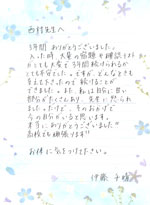 西村先生へ
3年間ありがとうございました。
入った時、大量の宿題や確認テスト
がとても大変で3年間続けられるか
とても不安でした。ですが、どんなときも
支えて下さったので続けることが
できました。また、私は自分に甘い
部分がたくさんあり、先生に怒られ
ましたけど、そのおかげで
今の自分がいると思います。
本当にありがとうございました。
高校でも頑張ります!
お体に気をつけて下さい。
伊藤